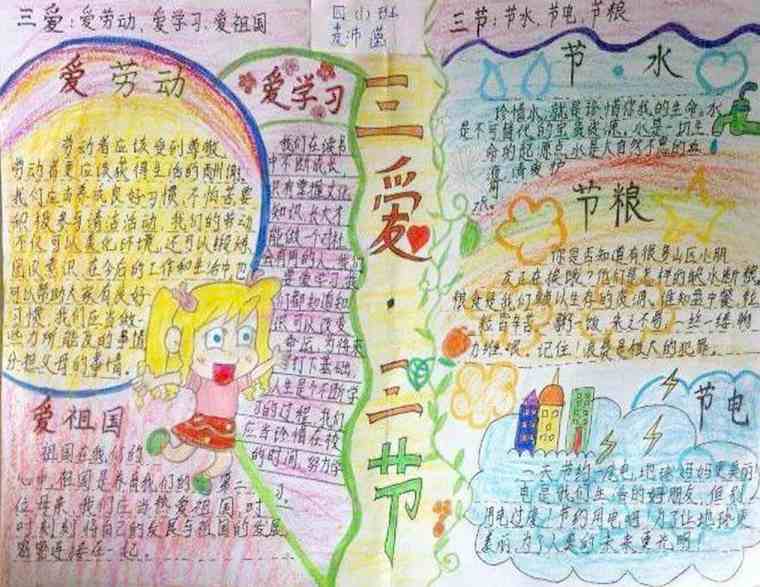 三爱:爱劳动、爱学习、爱祖国
四(1)班
三节:节水、节电、节粮
爱劳动
劳动者应该受到尊敬,
劳动者更应该获得生活的
我们应当养成良好习惯,不怕苦累
积极参与清洁活动,我们的劳动
不仅可以美化环境,还可以
团队意识,在今后的工作和生活中,
可以帮助大家有良好
习惯,我们应当做
力所能及的事情
分担父母的事情。
爱学习
我们在读书
中不断成长,
只有掌握文化
知识,长大才
能做一个对社
会有用的人,我们
要爱学习,我
们都知道知
识可以改变
命运,为将来
打下基础
人生是个不断学
习的过程,我们
应当珍惜在校
的时间,努力学
习。
爱祖国
祖国在我们的
心中,祖国是养育我们的第二
位母亲,我们应当热爱祖国,时
时刻刻将自己的发展与祖国的发展
紧密连接在一起。
三爱·三节
节·水
珍惜水,就是珍惜你我的生命,水
是不可替代的宝贵资源,水是一切生
命的起源点,水是大自然不息的血
液,请爱护
水。
节粮
你是否知道有很多山区小朋
友正在挨饿?他们是怎样的缺水断粮,
粮食是我们赖以生存的资源。谁知盘中餐,粒
粒皆辛苦。一粥一饭,来之不易,一丝一缕,物
力维艰。记住!浪费是极大的犯罪。
节电
一天节约一度电,地球妈妈更美丽
电是我们生活的好朋友,但别
用电过度!节约用电吧!为了让地球更
美丽,为了人类的未来更光明!